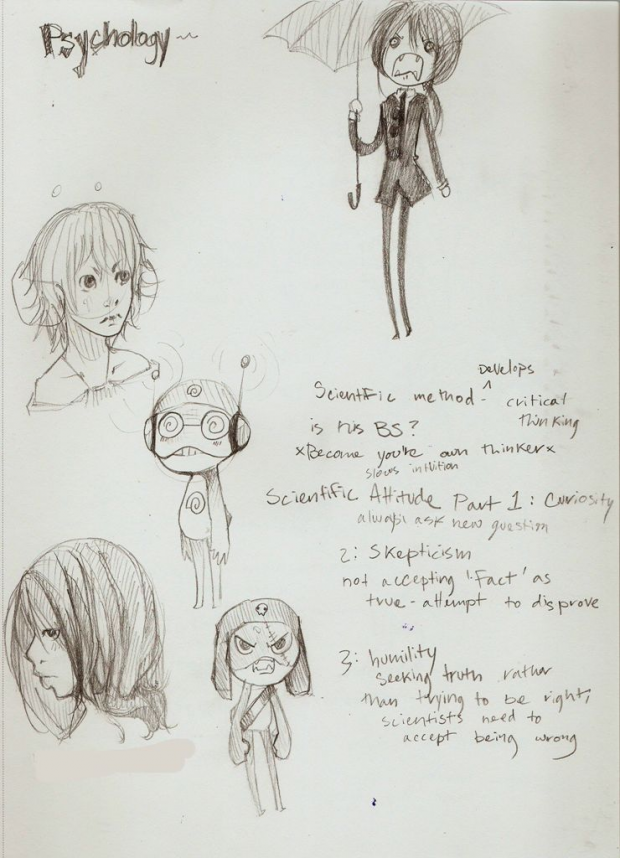 Psychology~
Develops
Scientific method - ^ critical
thinking
is this BS?
xBecome you're own thinkerx
slows intuition
Scientific Attitude Part 1: Curiosity
always ask new question
2: Skepticism
not accepting 'Fact' as
true - attempt to disprove
3: humility
seeking truth rather
than trying to be right,
scientists need to
accept being wrong